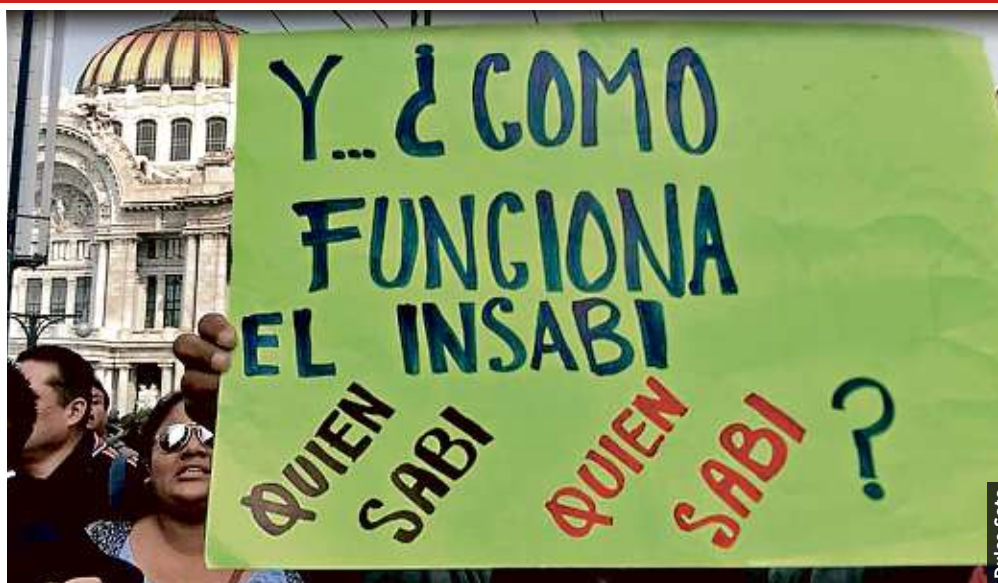 Y... ¿COMO
FUNCIONA
EL INSABI
QUIEN
SABI
QUIEN
SABI
?